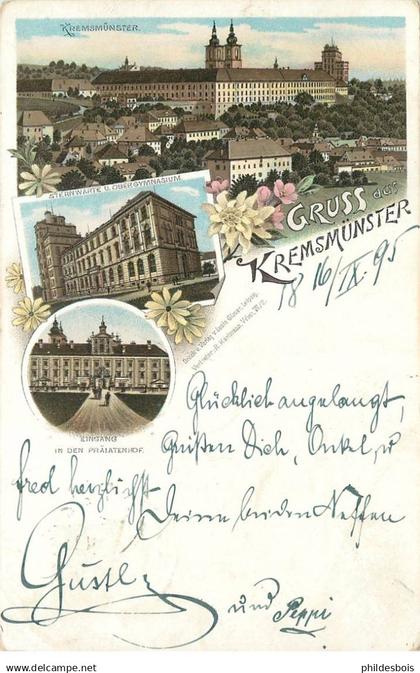 KREMSMÜNSTER.
STERNWARTE U. OBERGYMNASIUM.
GRUSS aus
KREMSMÜNSTER
18 16/IX. 95
EINGANG
IN DEN PRÄLATENHOF.
Glücklich angelangt,
Grüßen Dich, Onkel, u
herzlichst
Deine beiden Neffen
Gustl
und Peppi
© philidesbois